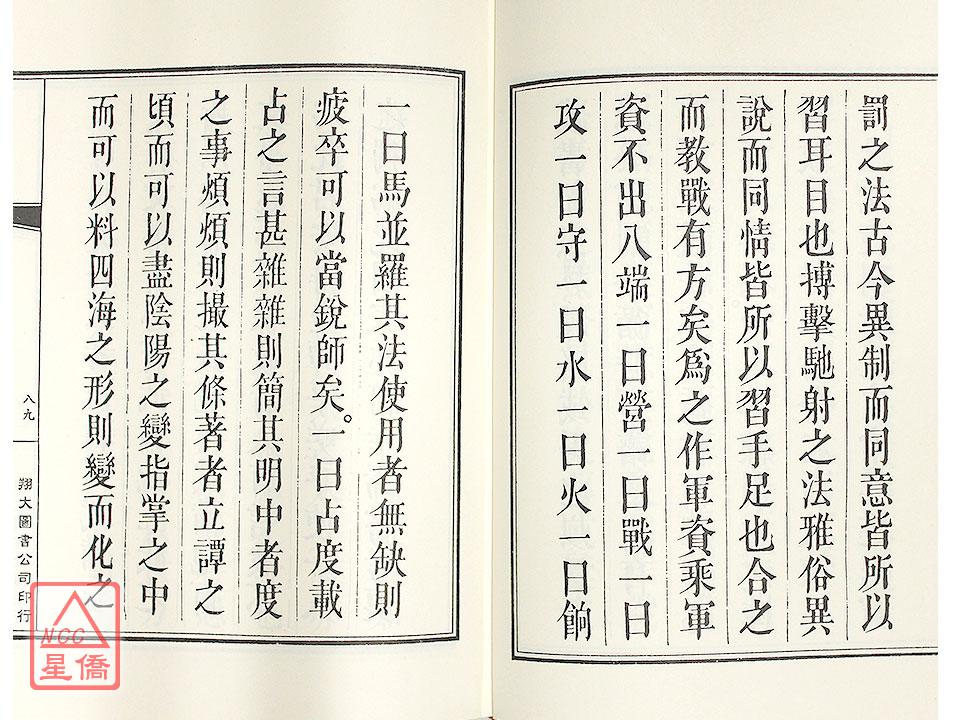 罰之法古今異制而同意皆所以
習耳目也搏擊馳射之法雅俗異
說而同情皆所以習手足也合之
而教戰有方矣為之作軍資乘軍
資不出八端一曰營一曰戰一曰
攻一曰守一曰水一曰火一曰餉
一曰馬並羅其法使用者無缺則
疲卒可以當銳師矣。一曰占度載
占之言甚雜雜則簡其明中者度
之事煩煩則撮其條著者立譚之
頃而可以盡陰陽之變指掌之中
而可以料四海之形則變而化之
八九
翔大圖書公司印行
NCC
星僑